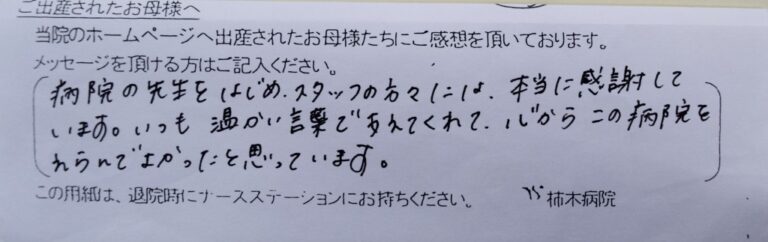 ご出産されたお母様へ
当院のホームページへ出産されたお母様たちにご感想を頂いております。
メッセージを頂ける方はご記入ください。
病院の先生をはじめ、スタッフの方々には、本当に感謝して
います。いつも 温かい言葉で ささえてくれて、心から この病院を
えらんでよかったと思っています。
この用紙は、退院時にナースステーションにお持ちください。 柿木病院